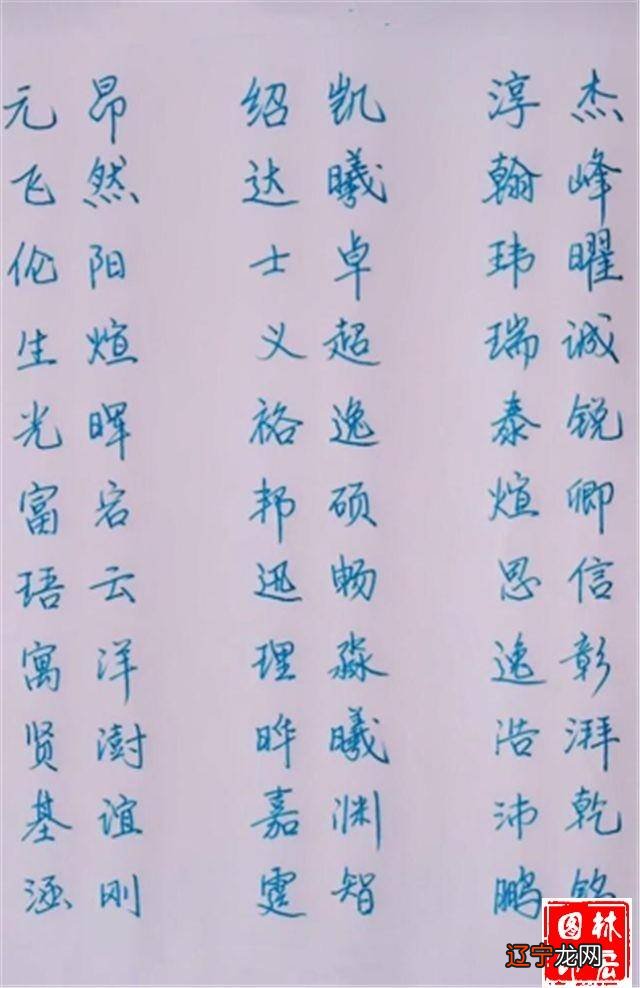 元昂 绍凯 淳杰
飞然 达曦 翰峰
伦阳 士卓 玮曜
生煊 义超 瑞诚
光晖 裕逸 泰锐
富宕 邦硕 煊卿
珸云 迅畅 思信
寓洋 理淼 逸彰
贤澍 晔曦 浩湃
基谊 嘉渊 沛乾
涵刚 霆智 鹏
图林
辽宁龙网